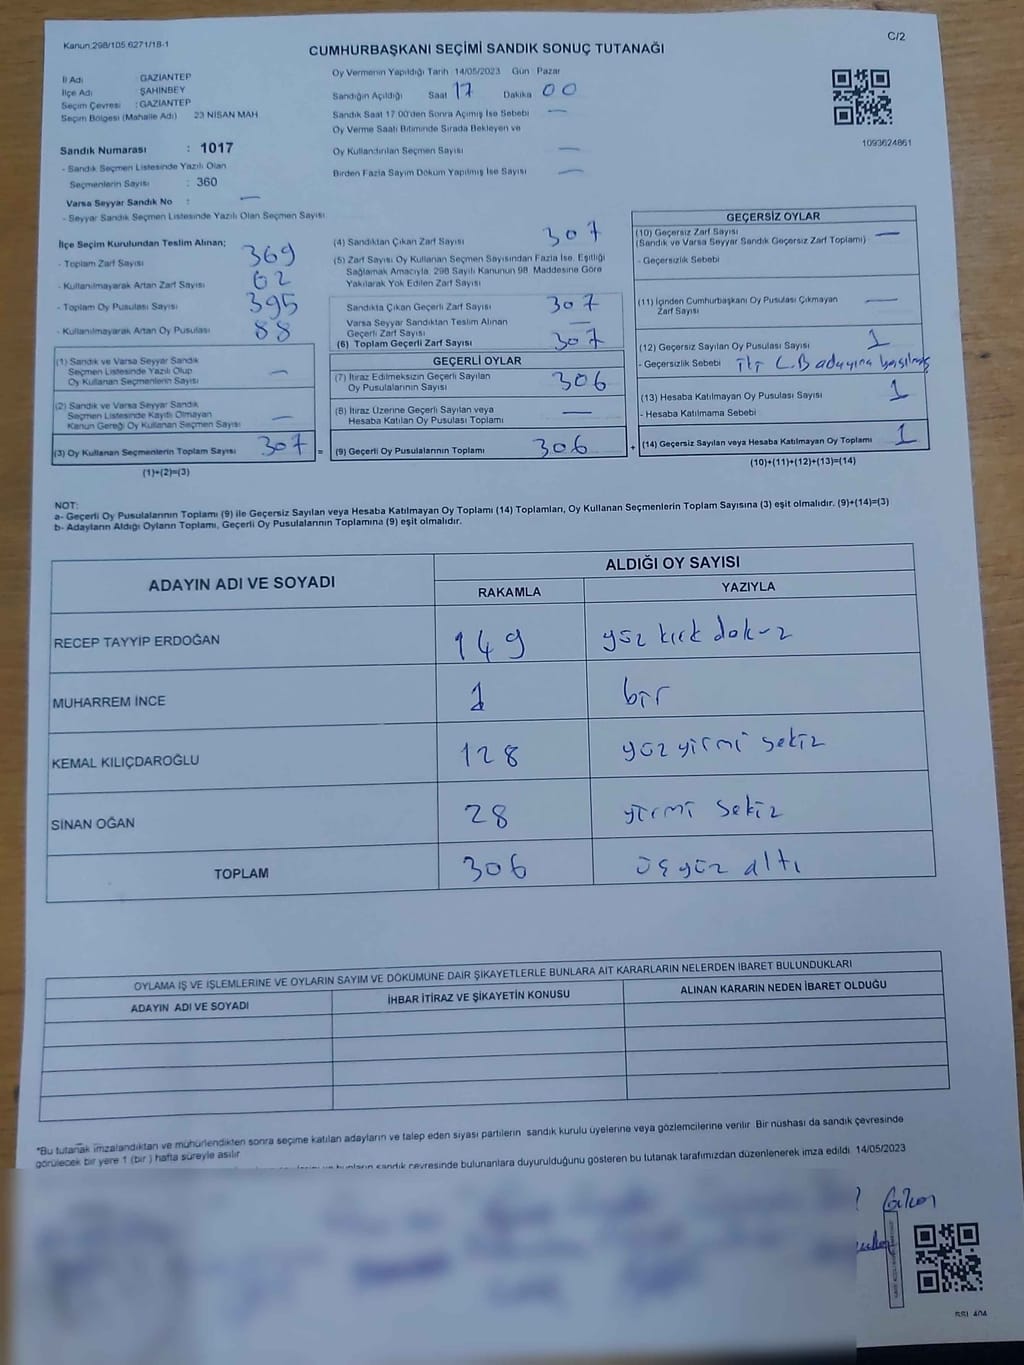 Kanun:298/105.6271/18-1
C/2
CUMHURBAŞKANI SEÇİMİ SANDIK SONUÇ TUTANAĞI
İl Adı : GAZİANTEP
İlçe Adı : ŞAHİNBEY
Seçim Çevresi : GAZİANTEP
Seçim Bölgesi (Mahalle Adı) 23 NİSAN MAH
Sandık Numarası : 1017
- Sandık Seçmen Listesinde Yazılı Olan
Seçmenlerin Sayısı : 360
Varsa Seyyar Sandık No : —
- Seyyar Sandık Seçmen Listesinde Yazılı Olan Seçmen Sayısı
Oy Vermenin Yapıldığı Tarih 14/05/2023 Gün Pazar
Sandığın Açıldığı Saat 17 Dakika 00
Sandık Saat 17:00'den Sonra Açımış İse Sebebi —
Oy Verme Saati Bitiminde Sırada Bekleyen ve
Oy Kullandırılan Seçmen Sayısı —
Birden Fazla Sayım Döküm Yapılmış İse Sayısı —
1093624861
İlçe Seçim Kurulundan Teslim Alınan;
- Toplam Zarf Sayısı 369
- Kullanılmayarak Artan Zarf Sayısı 62
- Toplam Oy Pusulası Sayısı 395
- Kullanılmayarak Artan Oy Pusulası 88
(1) Sandık ve Varsa Seyyar Sandık
Seçmen Listesinde Yazılı Olup
Oy Kullanan Seçmenlerin Sayısı —
(2) Sandık ve Varsa Seyyar Sandık
Seçmen Listesinde Kayıtlı Olmayan
Kanun Gereği Oy Kullanan Seçmen Sayısı —
(3) Oy Kullanan Seçmenlerin Toplam Sayısı 307 =
(1)+(2)=(3)
(4) Sandıktan Çıkan Zarf Sayısı 307
(5) Zarf Sayısı Oy Kullanan Seçmen Sayısından Fazla İse, Eşitliği
Sağlamak Amacıyla, 298 Sayılı Kanunun 98. Maddesine Göre
Yakılarak Yok Edilen Zarf Sayısı
Sandıkta Çıkan Geçerli Zarf Sayısı 307
Varsa Seyyar Sandıktan Teslim Alınan
Geçerli Zarf Sayısı —
(6) Toplam Geçerli Zarf Sayısı 307
GEÇERLİ OYLAR
(7) İtiraz Edilmeksizin Geçerli Sayılan
Oy Pusulalarının Sayısı 306
(8) İtiraz Üzerine Geçerli Sayılan veya
Hesaba Katılan Oy Pusulası Toplamı —
(9) Geçerli Oy Pusulalarının Toplamı 306 +
GEÇERSİZ OYLAR
(10) Geçersiz Zarf Sayısı —
(Sandık ve Varsa Seyyar Sandık Geçersiz Zarf Toplamı)
- Geçersizlik Sebebi
(11) İçinden Cumhurbaşkanı Oy Pusulası Çıkmayan
Zarf Sayısı —
(12) Geçersiz Sayılan Oy Pusulası Sayısı 1
- Geçersizlik Sebebi iki C.B adayına basılmış
(13) Hesaba Katılmayan Oy Pusulası Sayısı 1
- Hesaba Katılmama Sebebi
(14) Geçersiz Sayılan veya Hesaba Katılmayan Oy Toplamı 1
(10)+(11)+(12)+(13)=(14)
NOT:
a- Geçerli Oy Pusulalarının Toplamı (9) ile Geçersiz Sayılan veya Hesaba Katılmayan Oy Toplamı (14) Toplamları, Oy Kullanan Seçmenlerin Toplam Sayısına (3) eşit olmalıdır. (9)+(14)=(3)
b- Adayların Aldığı Oyların Toplamı, Geçerli Oy Pusulalarının Toplamına (9) eşit olmalıdır.
ADAYIN ADI VE SOYADI
ALDIĞI OY SAYISI
RAKAMLA YAZIYLA
RECEP TAYYİP ERDOĞAN 149 yüz kırk dokuz
MUHARREM İNCE 1 bir
KEMAL KILIÇDAROĞLU 128 yüz yirmi sekiz
SİNAN OĞAN 28 yirmi sekiz
TOPLAM 306 üçyüz altı
OYLAMA İŞ VE İŞLEMLERİNE VE OYLARIN SAYIM VE DÖKÜMÜNE DAİR ŞİKAYETLERLE BUNLARA AİT KARARLARIN NELERDEN İBARET BULUNDUKLARI
ADAYIN ADI VE SOYADI İHBAR İTİRAZ VE ŞİKAYETİN KONUSU ALINAN KARARIN NEDEN İBARET OLDUĞU
*Bu tutanak imzalandıktan ve mühürlendikten sonra seçime katılan adayların ve talep eden siyasi partilerin sandık kurulu üyelerine veya gözlemcilerine verilir. Bir nüshası da sandık çevresinde
görülecek bir yere 1 (bir ) hafta süreyle asılır
sandık çevresinde bulunanlara duyurulduğunu gösteren bu tutanak tarafımızdan düzenlenerek imza edildi. 14/05/2023